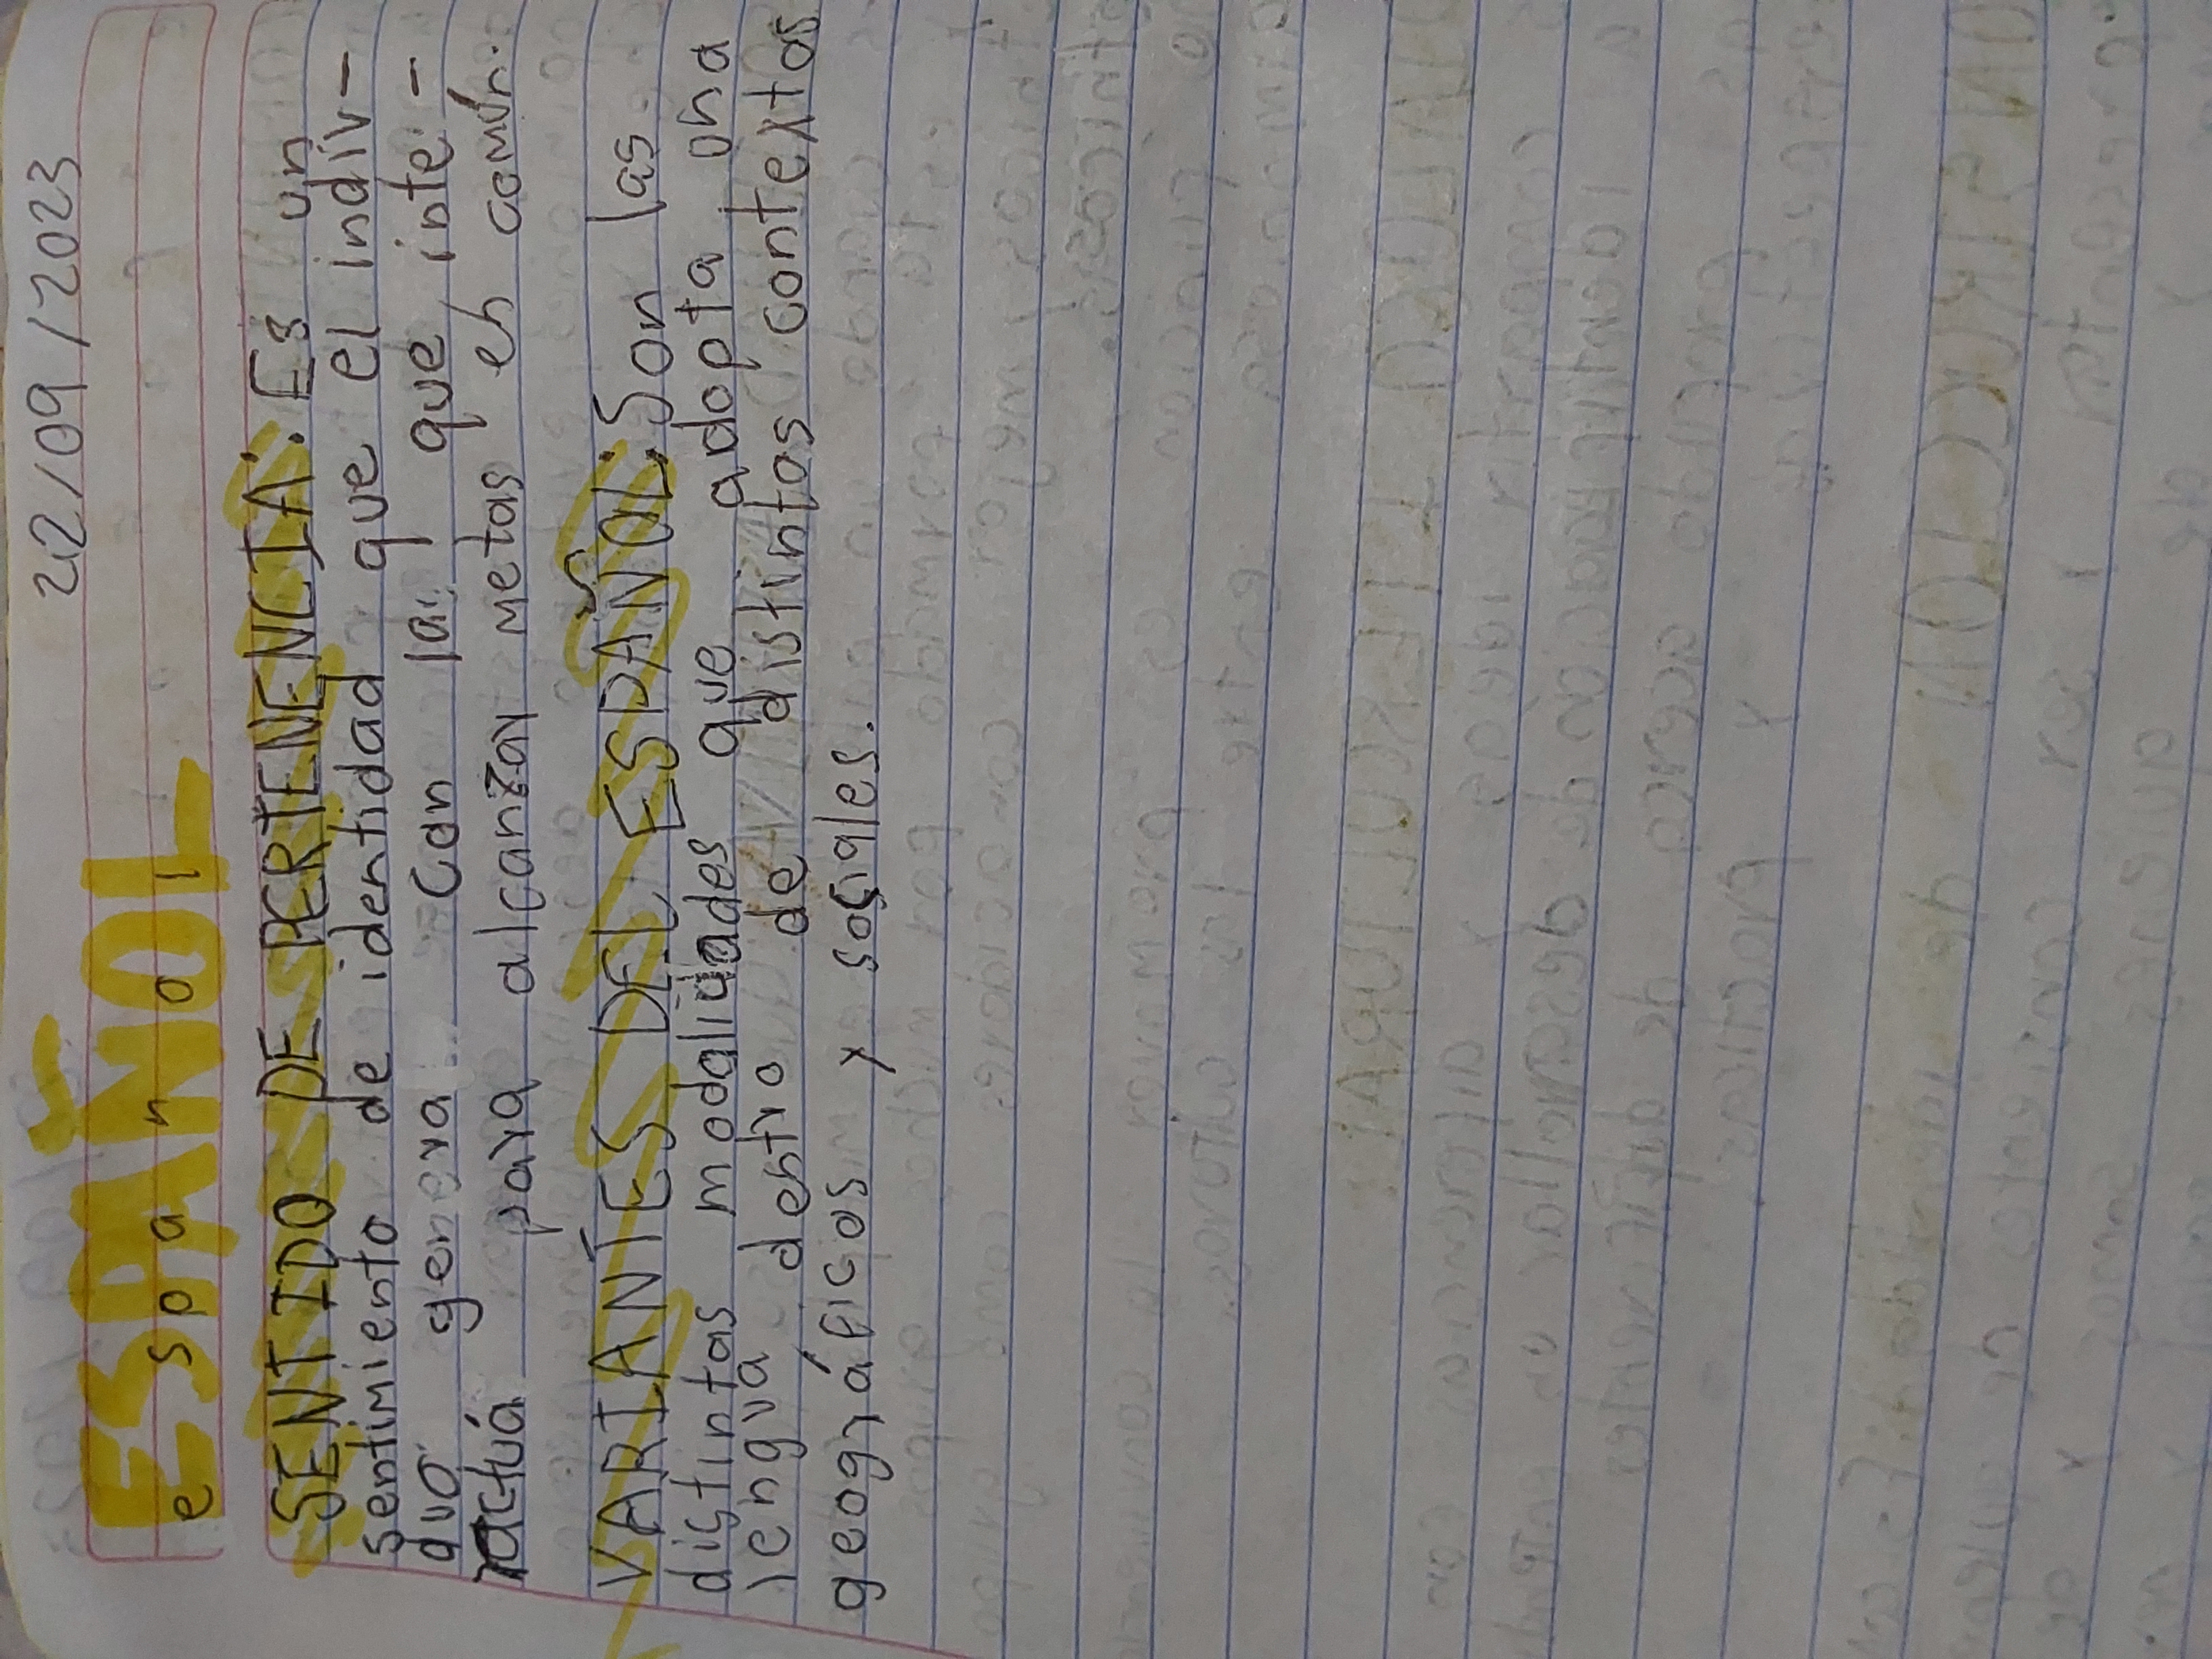 22/09/2023
ESPAÑOL
español
SENTIDO DE PERTENENCIA: Es un
sentimiento de identidad que el indiv-
duo genera con la que inte-
ractúa para alcanzar metas en común.
VARIANTES DEL ESPAÑOL: Son las
distintas modalidades que adopta una
lengua dentro de distintos contextos
geográficos y sociales.